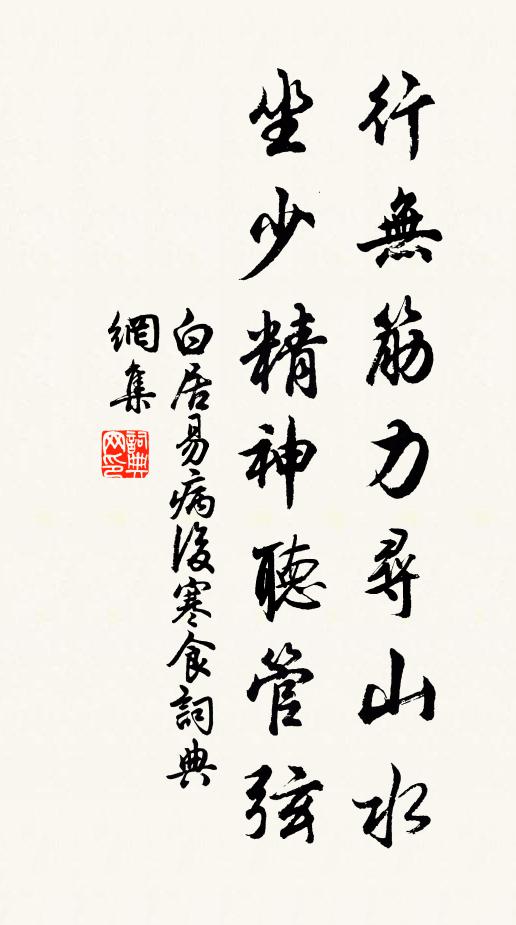 行無筋力尋山水
坐少精神聽管弦
白居易病後寒食詞典
網集
詞典
网印